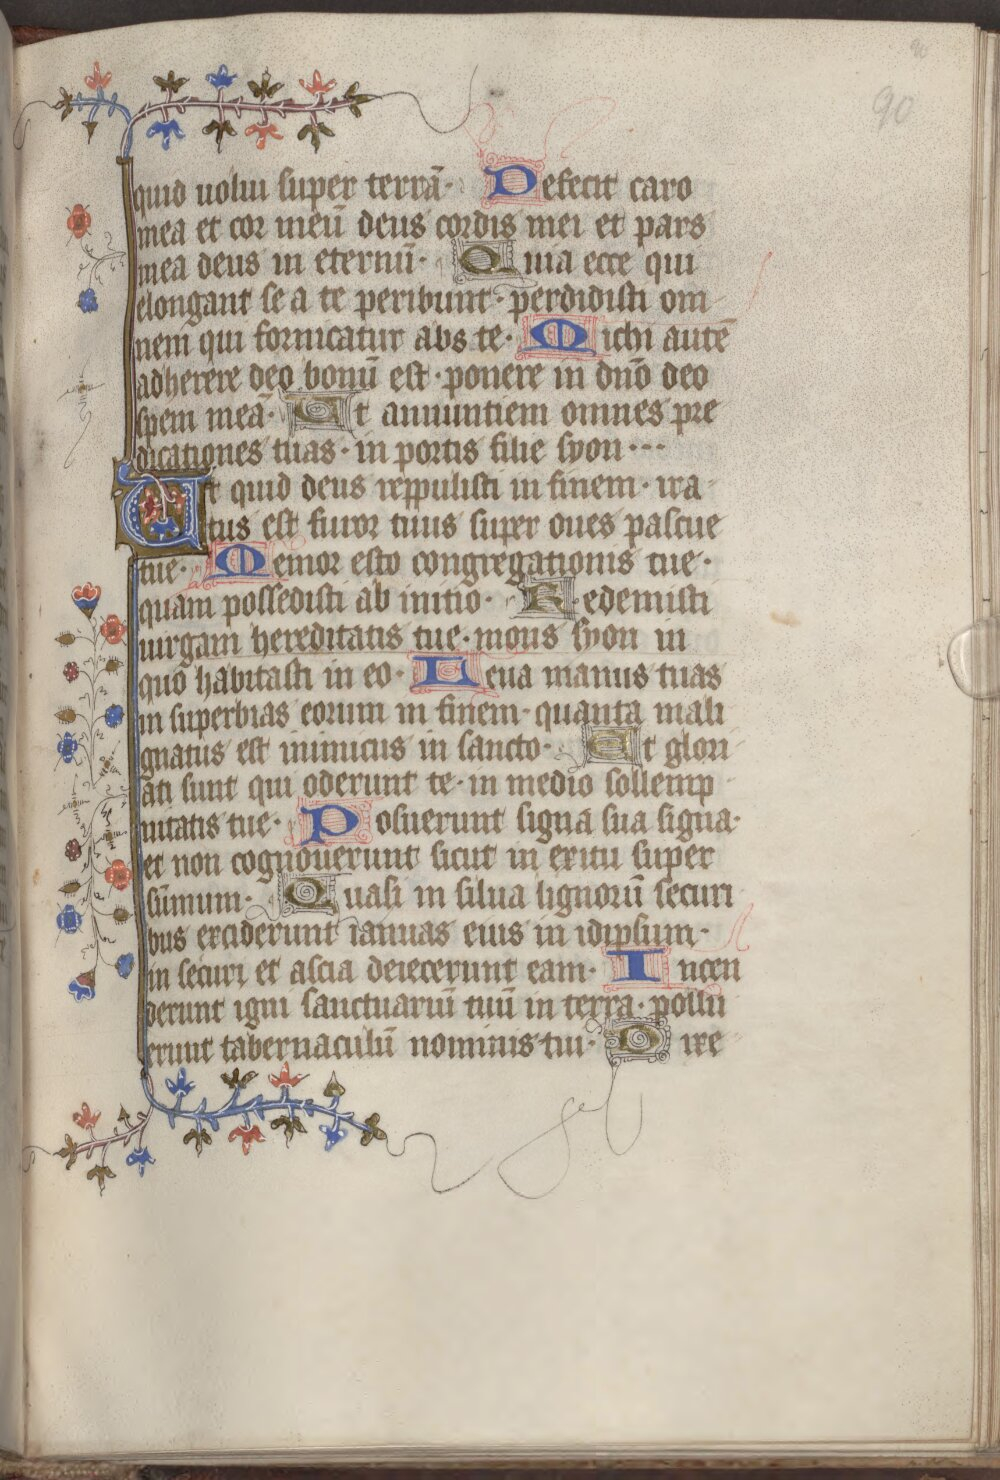 90
90
quid uolui super terrā· Defecit caro
mea et cor meū deus cordis mei et pars
mea deus in eternū· Quia ecce qui
elongant se a te peribunt· perdidisti om
nem qui fornicatur abs te· Michi autē
adherere deo bonū est· ponere in dn̄o deo
spem meā· Ut annuntiem omnes pre
dicationes tuas· in portis filie syon···
Ut quid deus reppulisti in finem· ira
tus est furor tuus super oues pascue
tue· Memor esto congregationis tue·
quam possedisti ab initio· Redemisti
uirgam hereditatis tue· mons syon in
quo habitasti in eo· Leua manus tuas
in superbias eorum in finem· quanta mali
gnatus est inimicus in sancto· Et glori
ati sunt qui oderunt te· in medio sollemp
nitatis tue· Posuerunt signa sua signa·
et non cognouerunt sicut in exitu super
sūmum· Quasi in silua lignorū securi
bus exciderunt ianuas eius in idipsum·
in securi et ascia deiecerunt eam· Incen
derunt igni sanctuariū tuū in terra· pollu
erunt tabernaculū nominis tui· Dixe